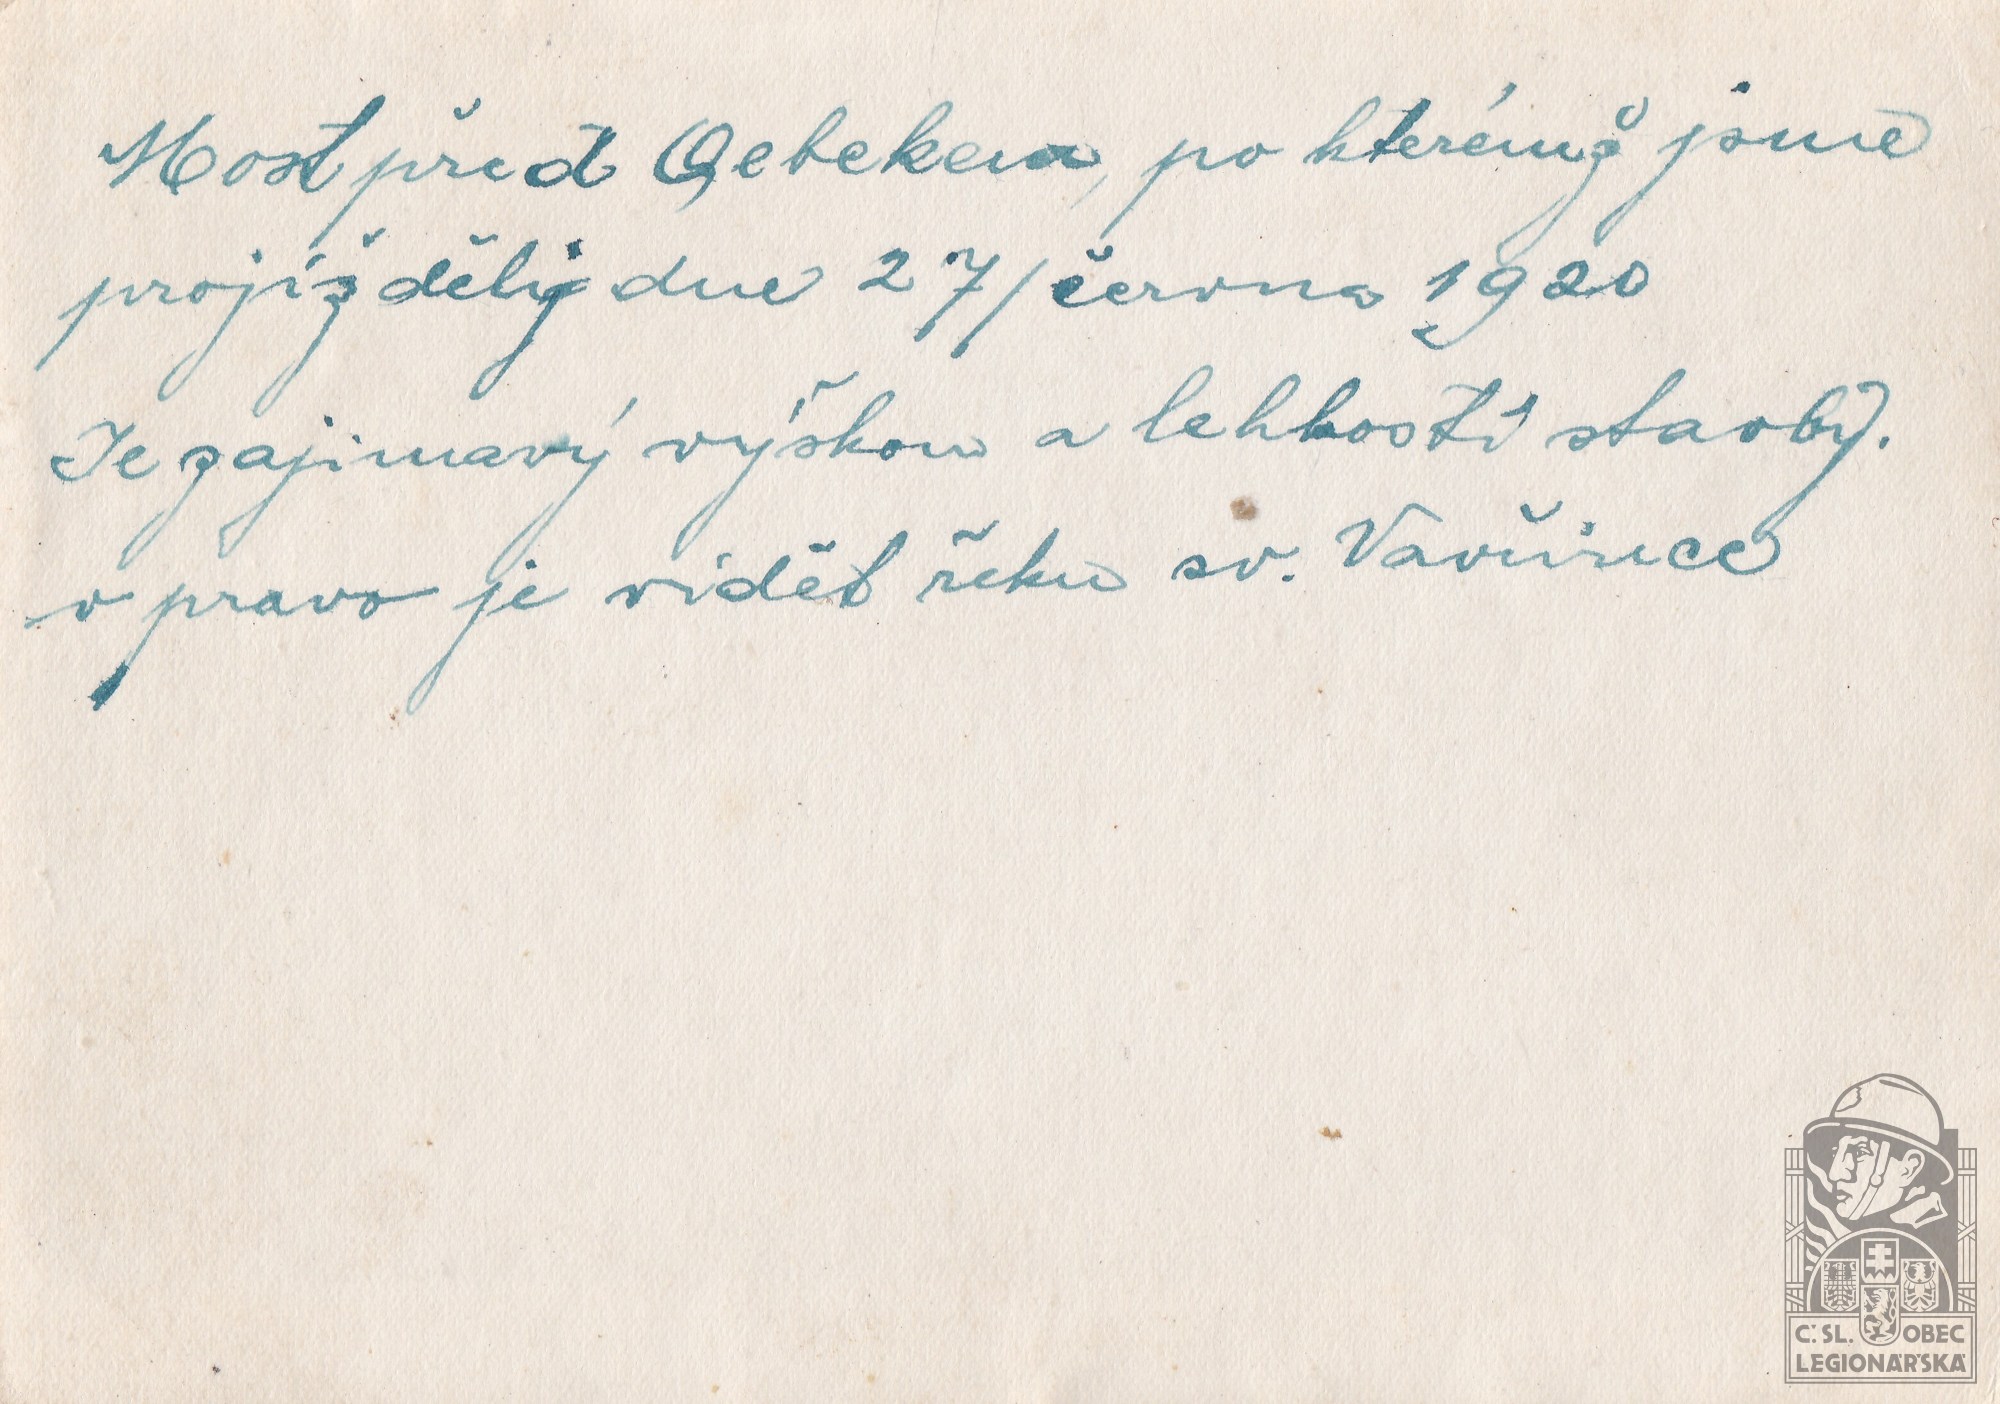 Most před Qebekem, po kterémž jsme
projížděli dne 27/června 1920
Je zajimavý výškou a lehkostí stavby.
v pravo je vidět řeku sv. Vavřince
Č. SL. OBEC
LEGIONÁŘSKÁ